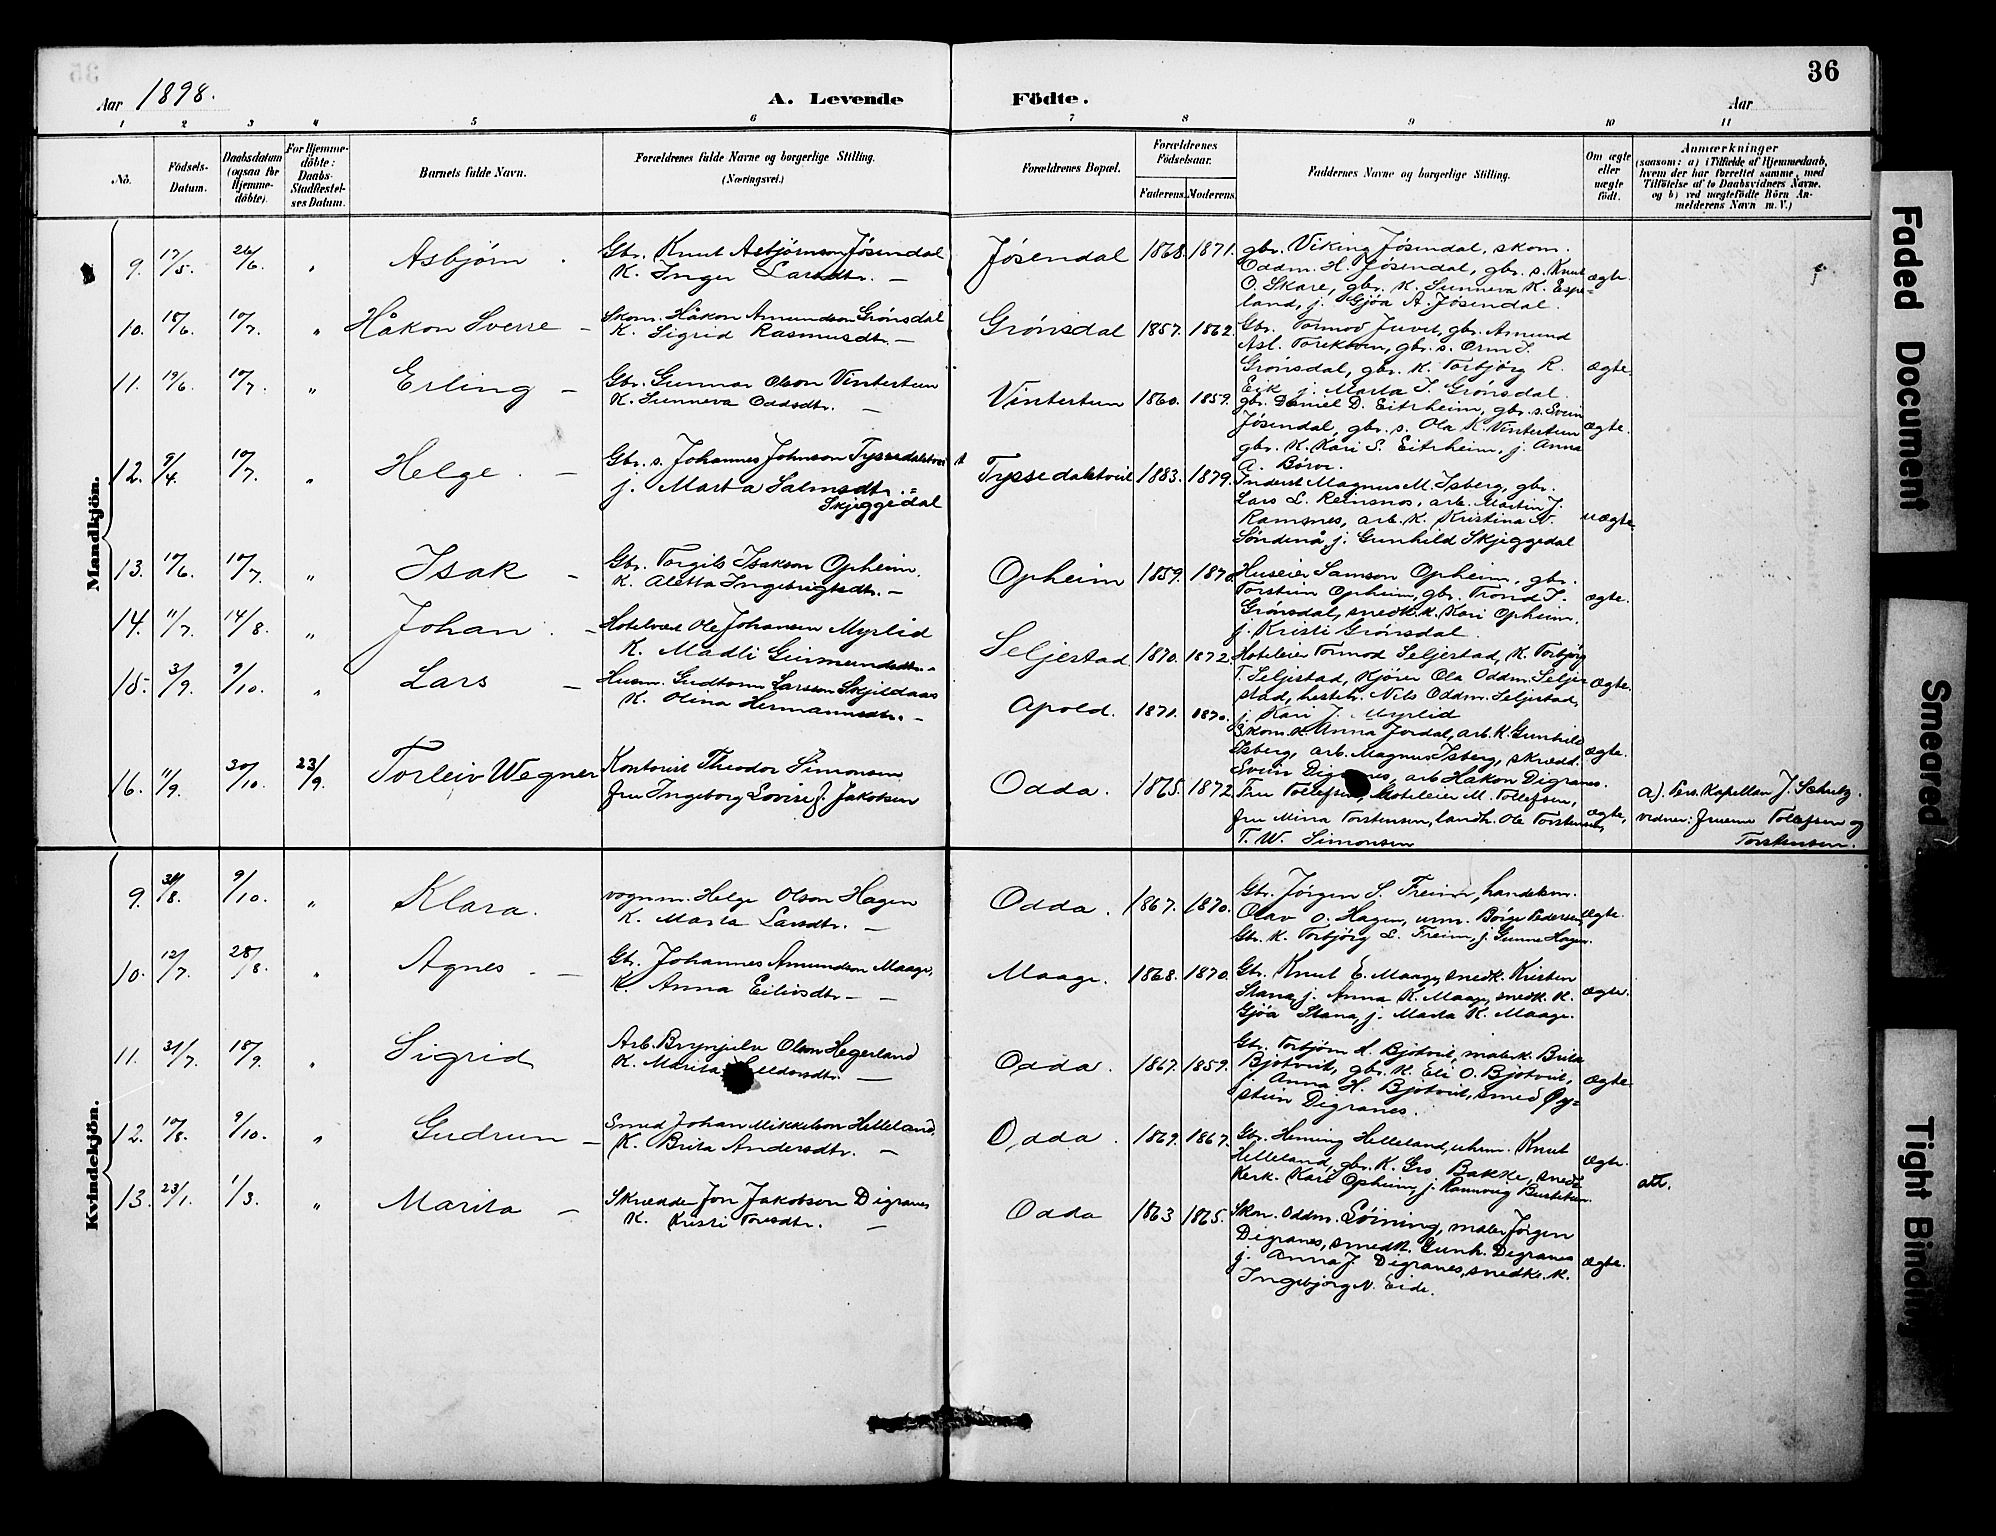 36
Aar 1898.
A. Levende Födte.
Aar
1 2 3 4 5 6 7 8 9 10 11
No.
Födsels-Datum.
Daabsdatum (ogsaa for Hjemme-döbte).
For Hjemme-döbte: Daabs-Stadfæstel-ses Datum.
Barnets fulde Navn.
Forældrenes fulde Navne og borgerlige Stilling. (Næringsvei.)
Forældrenes Bopæl.
Forældrenes Födselsaar.
Faderens. Moderens.
Faddernes Navne og borgerlige Stilling.
Om ægte eller uægte födt.
Anmærkninger
(saasom: a) i Tilfælde af Hjemmedaab,
hvem der har forrettet samme, med
Tilföielse af to Daabsvidners Navne,
og b) ved uægtefödte Börn An-
melderens Navn m. V.)
Mandkjön.
9. 17/5. 26/6. „ Asbjørn
Gbr. Knut Asbjørnson Jøsendal
K. Inger Larsdtr. —
Jøsendal 1868. 1871.
gbr. Viking Jøsendal, skom.
Oddm. H. Jøsendal, gbr. s. Knut
O. Skare, gbr. K. Sunneva K. Espe-
land, j. Gjøa A. Jøsendal.
ægte.
10. 18/6. 10/7. „ Håkon Sverre —
Skom. Håkon Amundson Grønsdal
K. Sigrid Rasmusdtr. —
Grønsdal 1857. 1862.
Gbr. Tormod Juvet, gbr. Amund
Asl. gbr. s. Orm T.
Grønsdal, gbr. K. Torbjørg R.
Eik, j. Marta T. Grønsdal.
ægte.
11. 19/6. 10/7. „ Erling —
Gbr. Gunnar Olson Vintertun
K. Sunneva Oddsdtr. —
Vintertun 1860. 1859.
gbr. Daniel D. Eitrheim, gbr. s. Svein
Jøsendal, gbr. s. Ola K. Vintertun
gbr. K. Kari S. Eitrheim, j. Anna
A. Børve.
ægte.
12. 9/4. 10/7. „ Helge. —
Gbr. s. Johannes Johnson Tyssedalstveit
j. Marta Salmsdtr. =
Skjeggedal
Tyssedalstveit 1883. 1879.
Inderst Magnus M. Isberg, gbr.
Lars L. Reinsnos, arb. Martin J.
Ramsnes, arb. K. Kristina N.
Søndenå, j. Gunhild Skjeggedal
uægte.
13. 10/6. 10/7. „ Isak —
Gbr. Torgils Isakson Opheim.
K. Aletta Ingebrigtsdtr. —
Opheim 1859. 1870
Huseier Samson Opheim, gbr.
Torstein Opheim, gbr. Trond T.
Grønsdal, snedk. K. Kari Opheim,
j. Kristi Grønsdal.
ægte.
14. 11/7. 14/8. „ Johan. —
Hotelvært Ole Johansen Myrlid
K. Madli Geirmundsdtr. —
Seljestad 1870. 1872.
Hoteleier Tormod Seljestad, K. Torbjør
T. Seljestad, Kjører Ola Oddm. Selje-
stad, hesteh. Nils Oddm. Seljestad,
j. Kari J. Myrlid
ægte.
15. 3/9. 9/10. „ Lars —
Husm. Gudtorm Larsson Skjeldaas
K. Olina Hermannsdtr. —
Apold. 1871. 1870.
Skom. K. Anna Jordal, arb. K. Gunhild
Isberg, arb. Magnus Isberg, skrædd.
Svein Digranes, arb Håkon Digranes.
ægte.
16. 11/9. 30/10. 23/9. Torleiv Wegner
Kontorist Theodor Simonsen
fru Ingeborg Lovise f. Jakobsen
Odda. 1865. 1872
Fru Tollefsen, Hoteleier M. Tollefsen,
fru Mina Torstensen, landh. Ole Torstensen,
T. W. Simonsen
ægte,
a). Pers. Kapellan J. Schulz.
vidner: fruerne Tollefsen og
Torstensen.
Kvindekjön.
9. 31/8. 9/10. „ Klara.
vognm. Helge Olson Hagen
K. Marta Larsdtr. —
Odda. 1867. 1870.
Gbr. Jørgen S. Freim, handelsm.
Olav O. Hagen, urm. Børge Pedersen,
Gbr. K. Torbjørg L. Freim, j. Gunne Hagen.
ægte.
10. 12/7. 28/8. „ Agnes. —
Gbr. Johannes Amundson Maage.
K. Anna Eilivsdtr — —
Maage. 1868. 1870.
Gbr. Knut E. Maage, snedk. Kristen
Stana, j. Anna K. Maage, snedk. K.
Gjøa Stana, j. Marta K. Maage.
ægte.
11. 31/7. 18/9. „ Sigrid
Arb. Brynjulv Olson Hegerland
K. Marita —
Odda. 1867. 1859.
Gbr. Torbjørn H. Bjotveit, maler K. Brita
Bjotveit, gbr. K. Eli O. Bjotveit,
j. Anna H. Bjotveit, smed Øy-
stein Digranes.
ægte.
12. 10/8. 9/10. „ Gudrun —
Smed Johan Mikkelson Helleland.
K. Brita Andersdtr. —
Odda. 1869. 1867.
Gbr. Heming Helleland, uhrm. Knut
Helleland, gbr. K. Gro Bakke, snedk
Kerk. Kari Opheim, j. Rannveig Bustetun.
ægte.
att.
13. 23/1. 1/3. „ Marita —
Skrædder Jon Jakobson Digranes
K. Kristi Toresdtr. —
Odda 1863 1865.
Skr. Oddm. Löining, maler Jørgen
Digranes, smedk. Gunh. Digranes
j. Anna J. Digranes, snedk. K.
Ingebjørg N. Eide.
ægte.
Faded Document
Smeared
Tight Binding